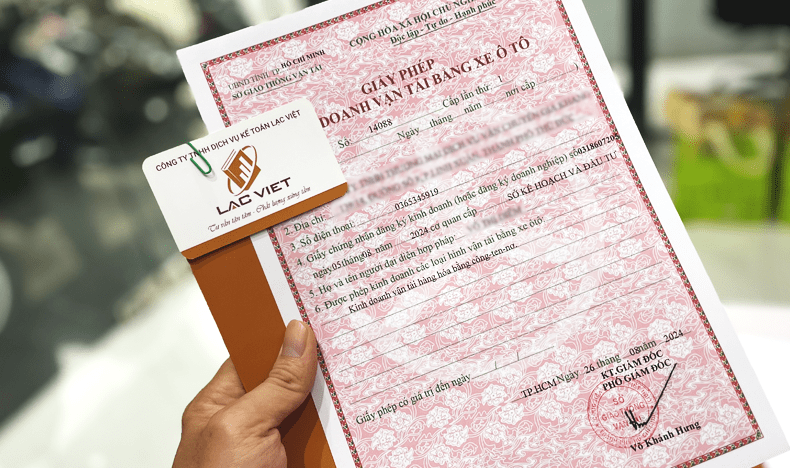 CỘNG HÒA XÃ HỘI CHỦ NGHĨA
Độc lập - Tự do - Hạnh phúc
UBND TỈNH, TP. HỒ CHÍ MINH
SỞ GIAO THÔNG VẬN TẢI
GIẤY PHÉP
DOANH VẬN TẢI BẰNG XE Ô TÔ
Số: 14088 Cấp lần thứ: 1
Ngày tháng năm nơi cấp )
CÔNG TY TNHH DỊCH VỤ KẾ TOÁN LẠC VIỆT
LAC VIET
Tư vấn tận tâm - Chất lượng xứng tầm
2. Địa chỉ:
3. Số điện thoại: 0365345919
4. Giấy chứng nhận đăng ký kinh doanh (hoặc đăng ký doanh nghiệp) số 031860720
ngày 05 tháng 08 năm 2024 cơ quan cấp SỞ KẾ HOẠCH VÀ ĐẦU TƯ
5. Họ và tên người đại diện hợp pháp
6. Được phép kinh doanh các loại hình vận tải bằng xe ôtô:
Kinh doanh vận tải hàng hóa bằng công-ten-nơ.
Giấy phép có giá trị đến ngày / /
TP.HCM, Ngày 26 tháng 08 năm 2024
KT.GIÁM ĐỐC
PHÓ GIÁM ĐỐC
SỞ
GIAO THÔNG
VẬN TẢI
Võ Khánh Hưng